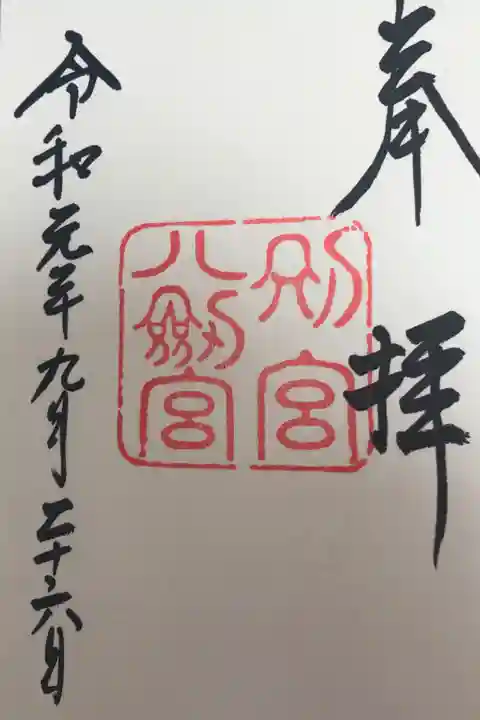 奉拝
別宮
八剣宮
令和元年九月二十六日